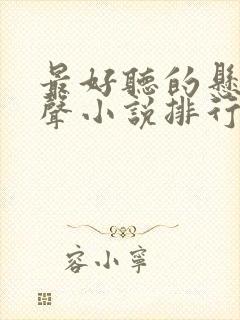 最好聽的懸
聲小說排行
容小寧